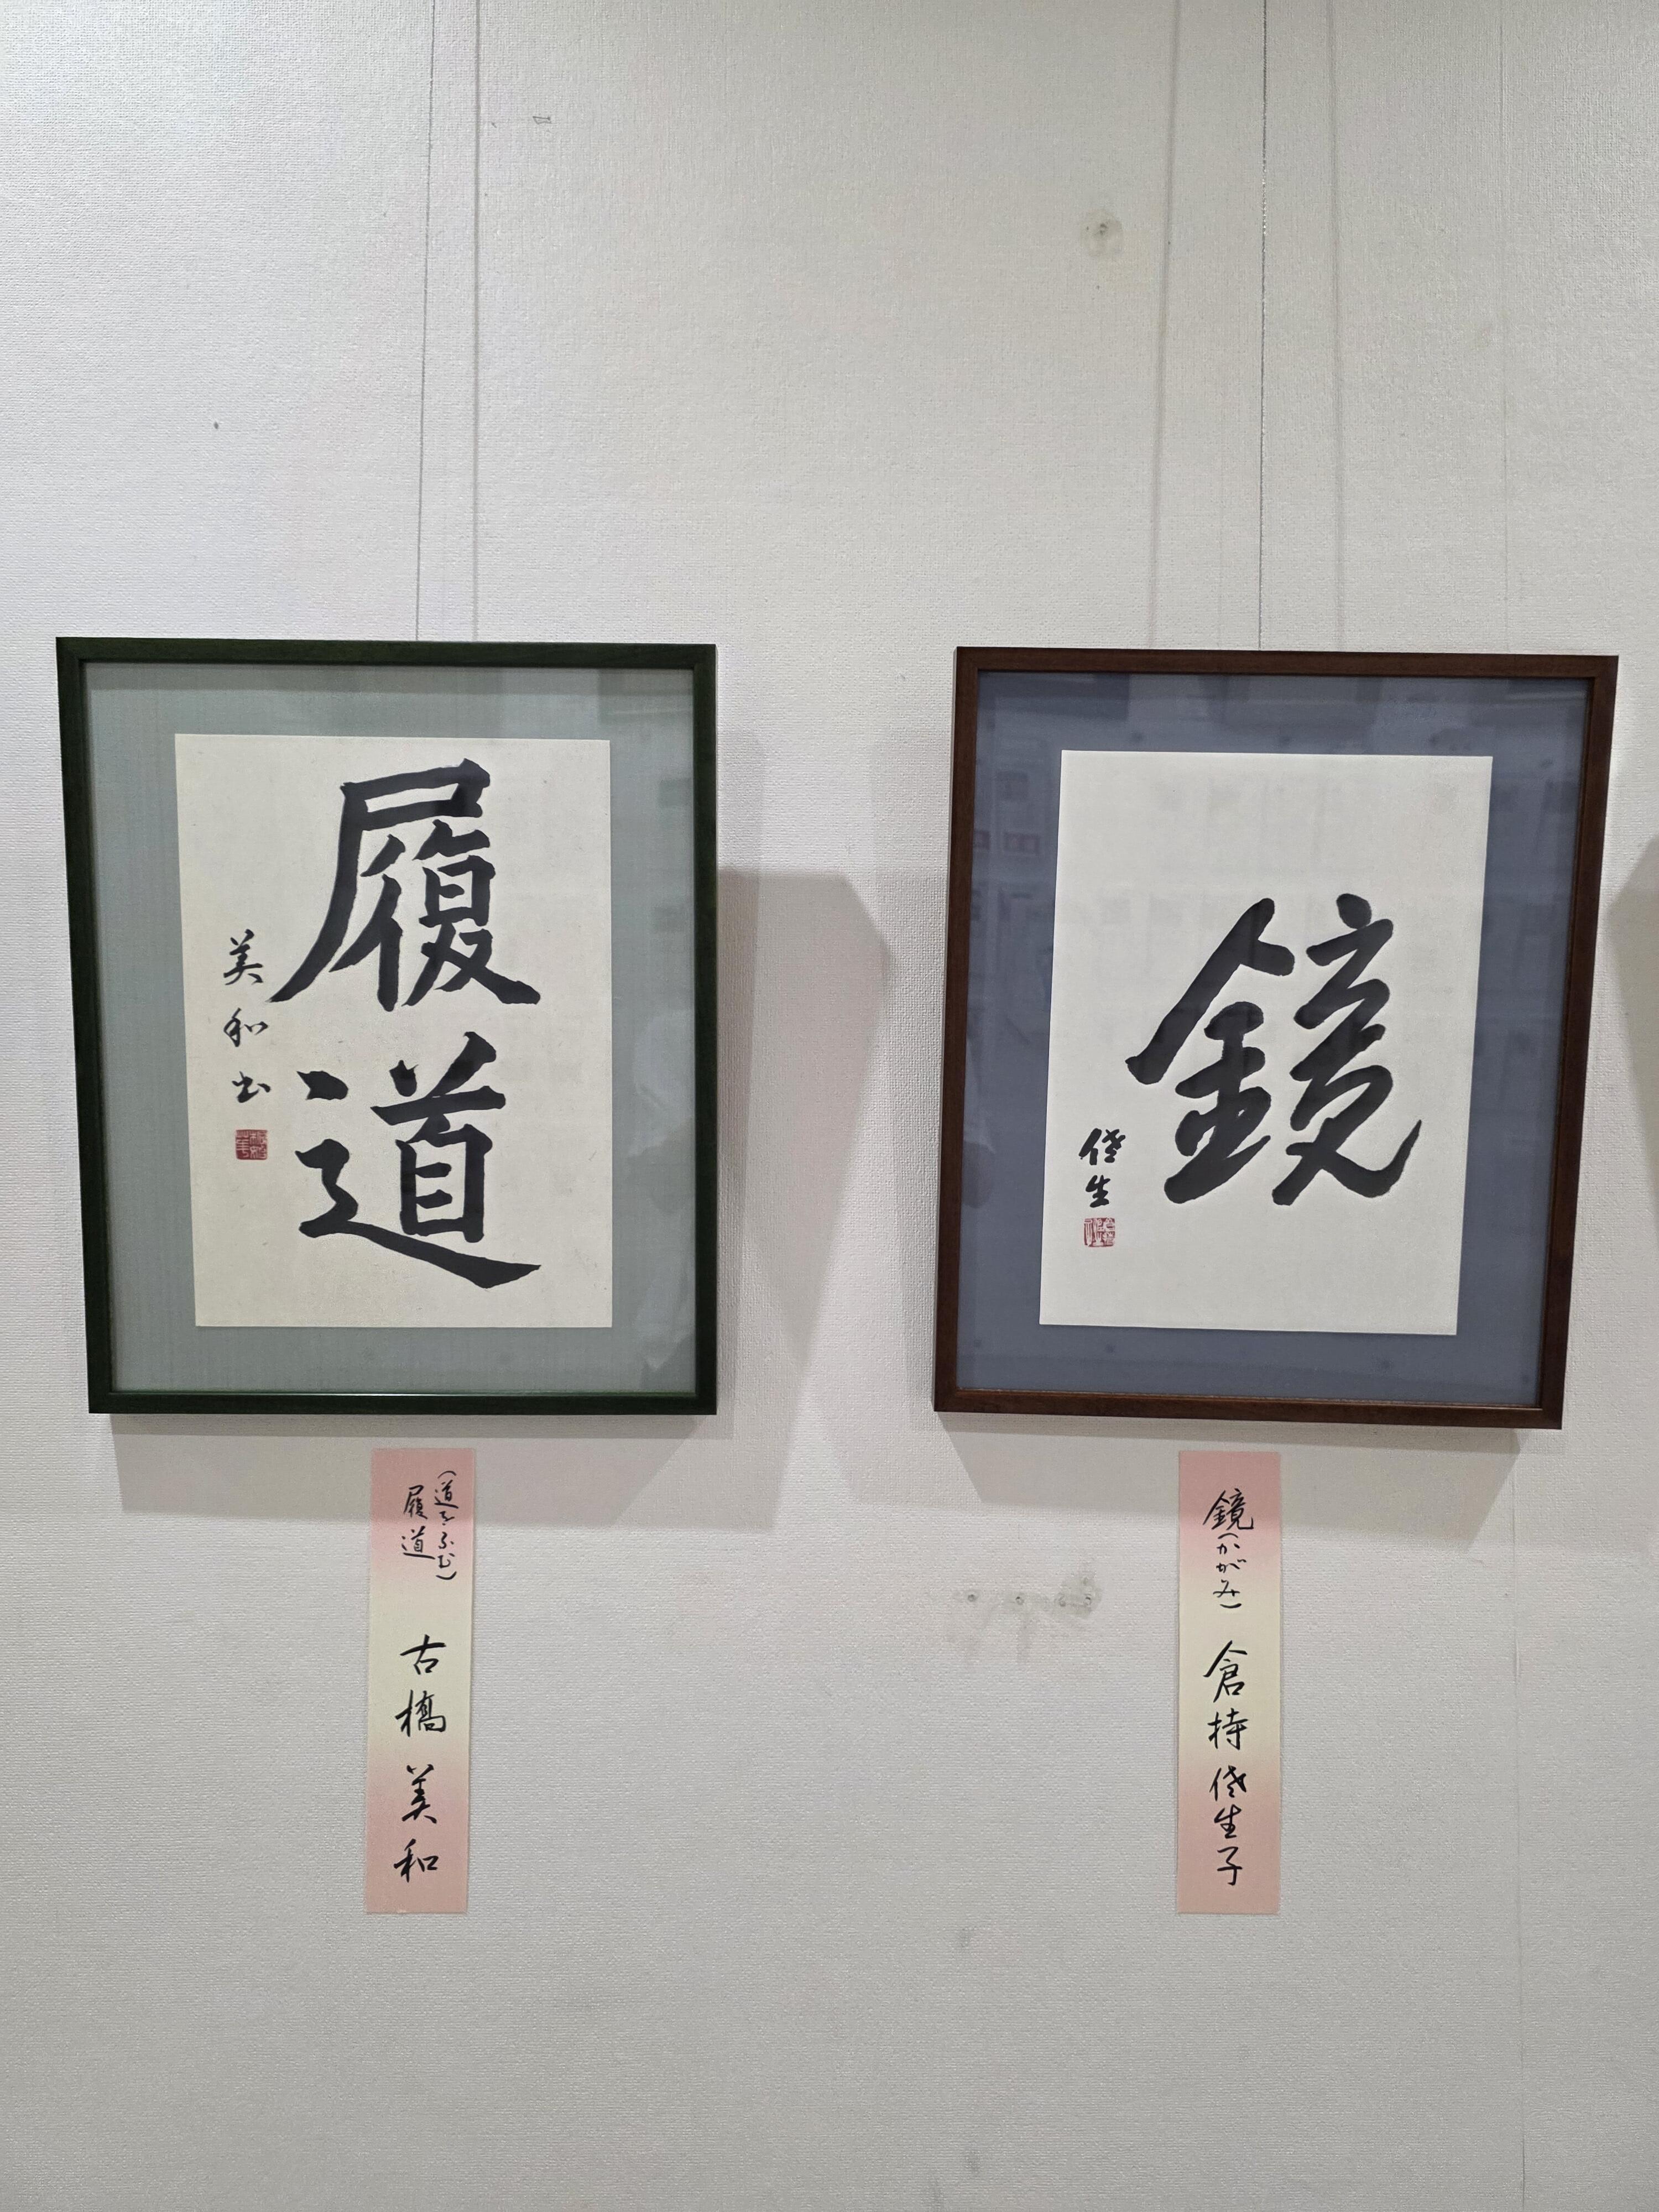 履道
美和書
(道をふむ)
履道 古橋美和
鏡
生
鏡(かがみ) 倉持 生子